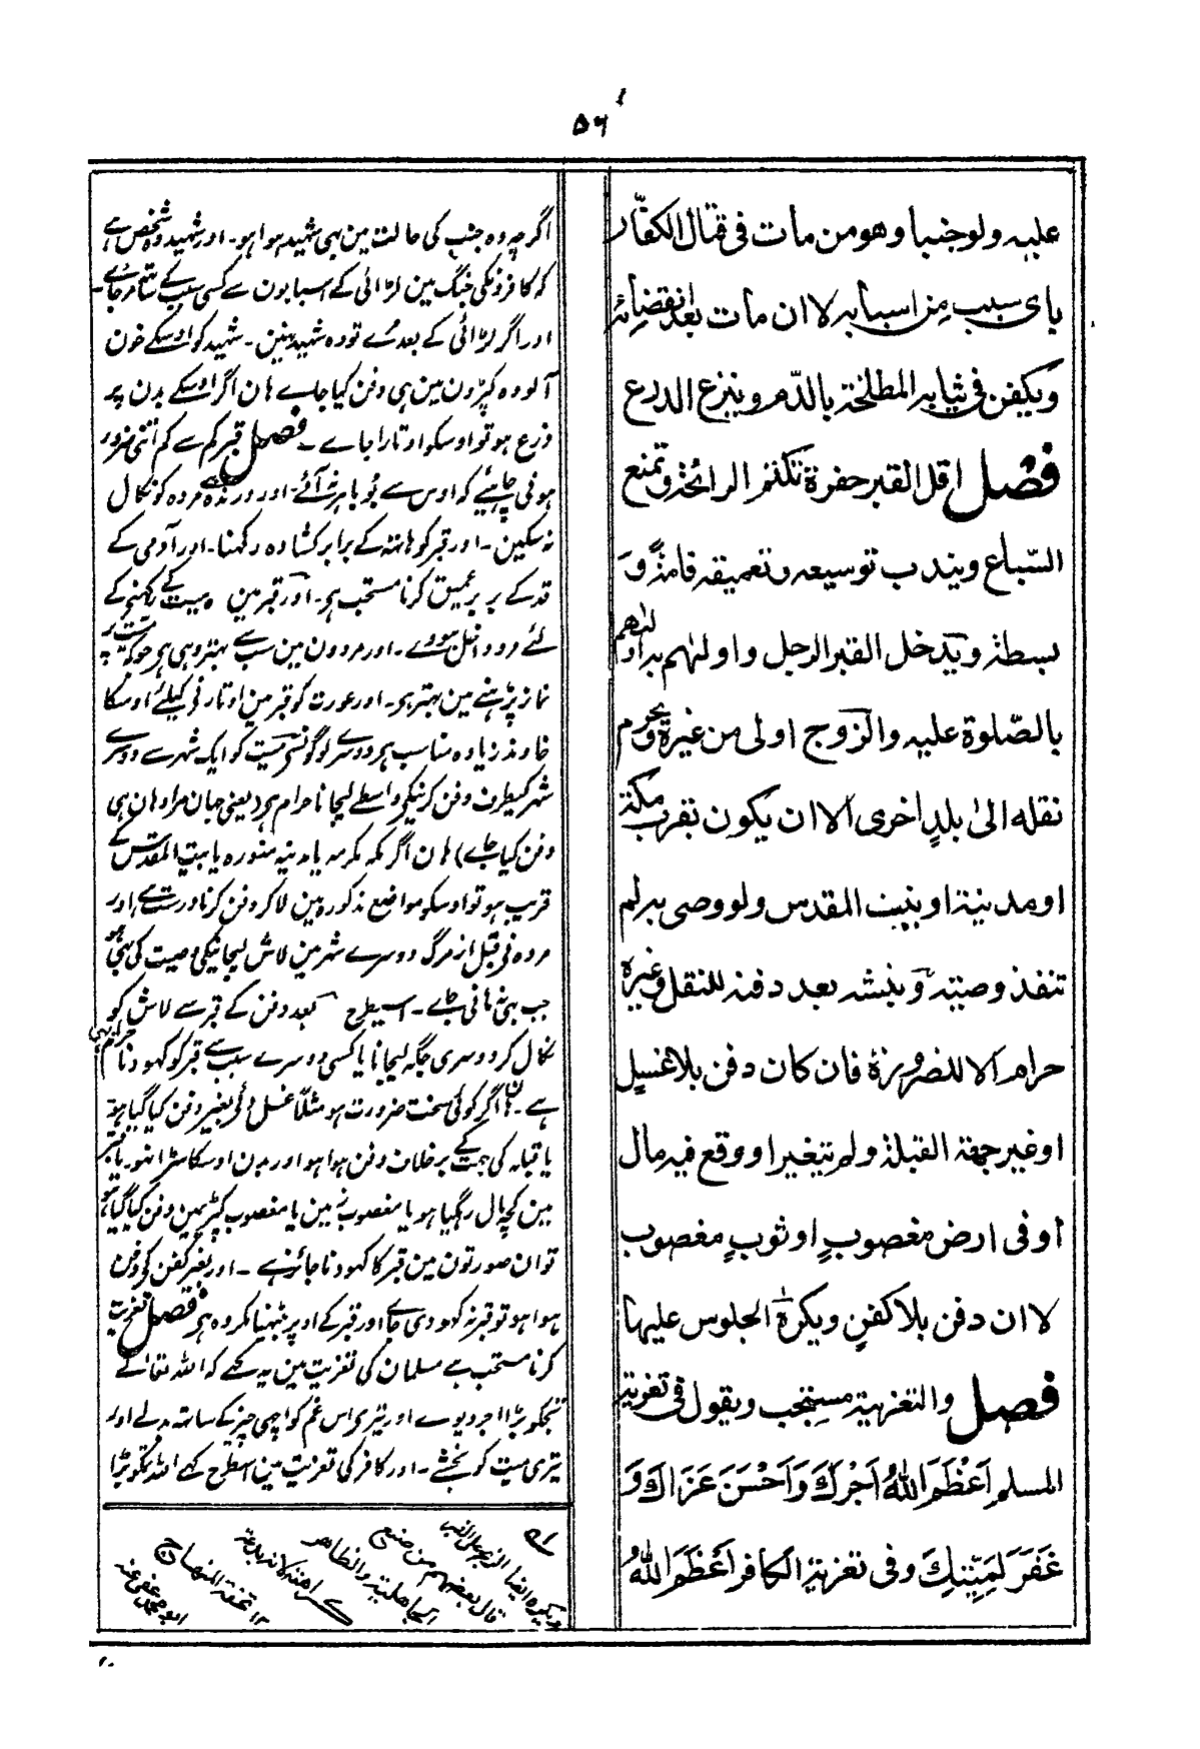 ۵۶
عليه ولو جنبا وهو من مات فى قتال الكفّار
باى سبب من اسبابه لا ان مات بعد انقضائه
ويكفن فى ثيابه المطلخة بالدّم وينزع الدرع
فصل اقل القبر حفرة تكتم الرائحة وتمنع
السّباع ويندب توسيعه وتعميقه قامة و
بسطة ويدخل القبر الرجل واولٰهم به اولٰهم
بالصّلوة عليه والزوج اولى من غيره ويحرم
نقله الىٰ بلدٍ اخرى الا ان يكون بقرب مكة
او مدينة او بيت المقدس ولو وصى به لم
تنفذ وصيته ونبشه بعد دفنه للنقل وغيره
حرام الا للضرورة فان كان دفن بلا غسل
او غير جهة القبلة ولم يتغير او وقع فيه مال
او فى ارض مغصوبٍ او ثوبٍ مغصوب
لا ان دفن بلا كفنٍ ويكره الجلوس عليها
فصل والتعزية مستحب ويقول فى تعزية
المسلم اَعْظَمَ اللهُ اَجْرَكَ وَاَحْسَنَ عَزَاكَ وَ
غَفَرَ لِمَيِّتِكَ وفى تعزية الكافر اَعْظَمَ اللهُ
اگرچہ وہ جنب کی حالت مین ہی شہید ہوا ہو۔ اور شہید وہ شخص ہے
کہ کافرونکی جنگ مین لڑائی کے اسبابون سے کسی سبب کے ساتھ مرجائے۔
اور اگر لڑائی کے بعد مرے تو وہ شہید نہین۔ شہید کو اوسکے خون
آلودہ کپڑون مین ہی دفن کیا جاے ہان اگر اوسکے بدن پر
ذرع ہو تو اوسکو اوتارا جاے۔ فصل قبر کم سے کم اتنی ضرور
ہونی چاہئیے کہ اوس سے بُو باہر نہ آئے۔ اور درندہ مردہ کو نکال
نہ سکین۔ اور قبر کو ہاتھ کے برابر کشادہ رکھنا۔ اور آدمی کے
قد کے برابر عمیق کرنا مستحب ہی۔ اور قبر مین میت کے رکھنے کے
لئے مرد داخل ہووے۔ اور مردون مین سب سے بہتر وہی ہی جو کہ میت پر
نماز پڑہنے مین بہتر ہی۔ اور عورت کو قبر مین اوتارنی کیلئے اوسکا
خاوند زیادہ مناسب ہی دوسرے لوگونسی میت کو ایک شہر سے دوسرے
شہر کیطرف دفن کرنیکی واسطے لیجانا حرام ہی (یعنی جہان مرا وہان ہی
دفن کیا جاے) ہان اگر مکہ مکرمہ یا مدینہ منورہ یا بیت المقدس کے
قریب ہو تو اوسکو مواضع مذکورہ مین لاکر دفن کرنا درست ہے اور
مردہ نی قبل از مرگ دوسرے شہر مین لاش لیجانیکی وصیت کی بھی ہو
جب بہی نہ مانی جاے۔ اسیطرح بعد دفن کے قبر سے لاش کو
نکال کر دوسری جگہ لیجانا یا کسی دوسرے سبب سے قبر کو کھودنا بھی حرام
ہے۔ ہان اگر کوئی سخت ضرورت ہو مثلاً غسل دئی بغیر دفن کیا گیا ہو
یا قبلہ کی جہت کے برخلاف دفن ہوا ہو اور بدن اوسکا سڑا نہو۔ یا قبر
مین کچھ مال رہگیا ہو یا مغصوب زمین یا مغصوب کپڑیمین دفن کیا گیا ہو
تو ان صورتون مین قبر کا کھودنا جائز ہے۔ اور بغیر کفن کی دفن
ہوا ہو تو قبر نہ کھودی جاے اور قبر کے اوپر بیٹھنا مکروہ ہی فصل تعزیت
کرنا مستحب ہے مسلمان کی تعزیت مین یہ کہے کہ اللہ تعالے
تجکو بڑا اجر دیوے اور تیری اس غم کو اچھی چیز کے ساتھ بدلے اور
تیری میت کو بخشے۔ اور کافر کی تعزیت مین اسطرح کہے اللہ تجکو بڑا
ويكره ايضا
قال بعضهم من
الجاهلية والظاهر
كراهته لانه بدعة
۱۲ تحفة المنهاج
ابو محمد عفى عنه